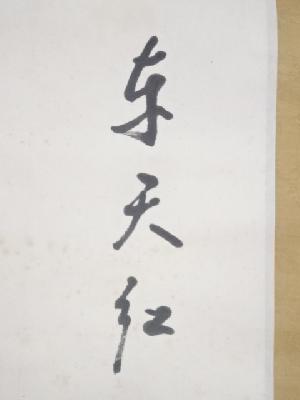 东天红